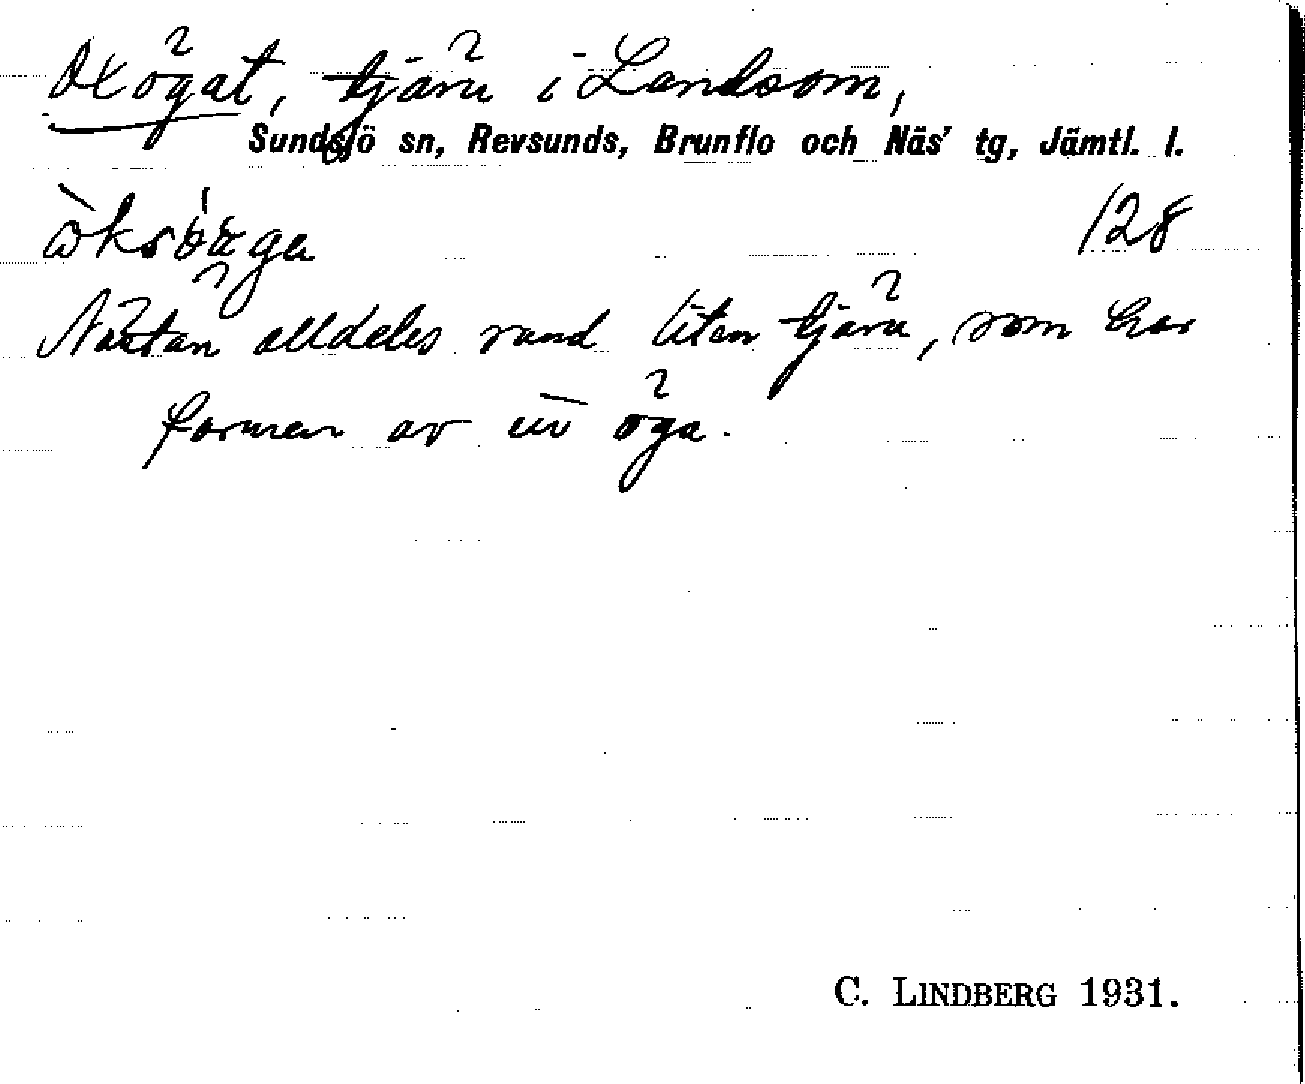 Oxögat, tjärn i Landsom,
Sundsjö sn, Revsunds, Brunflo och Näs' tg, Jämtl. l.
128
Nästan alldeles rund liten tjärn, som har
formen av ett öga.
C. LINDBERG 1931.